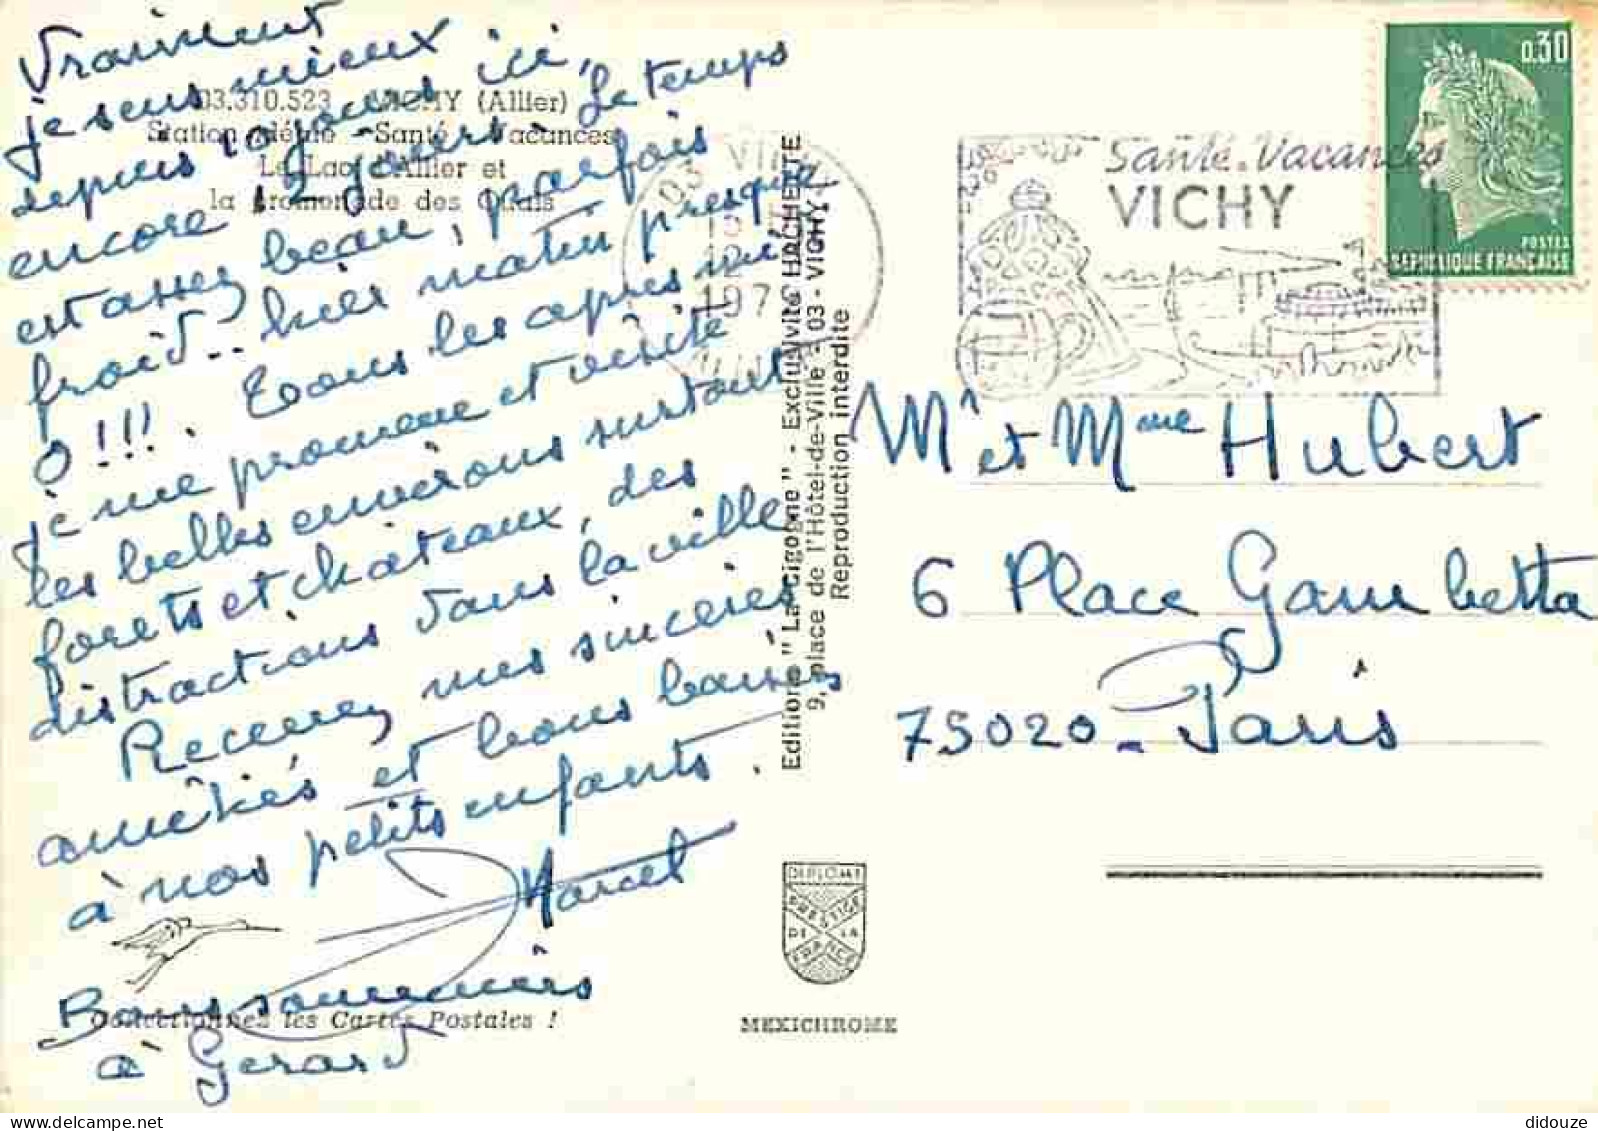 Vraiment
je suis mieux
depuis 10 jours ici,
encore 12 jours à
Le temps
est assez beau, parfois
froid.. hier matin presque
0!!!. Tous les après midi
je me promène et visite
les belles environs surtout
forets et chateaux, des
distractions dans la ville
Recevez mes sincères
amitiés et bons baisers
à nos petits enfants.
Marcel
Bons souvenirs
à Gérard
03.310.523 VICHY (Allier)
Station - Santé - Vacances
Le Lac d'Allier et
la promenade des Quais
Collectionnez les Cartes Postales !
Editions "La Cigogne" - Exclusivité HACHETTE
9, place de l'Hôtel-de-Ville - 03 - VICHY
Reproduction interdite
DIPLOME
PRESTIGE
DE LA
FRANCE
MEXICHROME
03 VICHY
12
197
Santé. Vacances
VICHY
0,30
POSTES
REPUBLIQUE FRANÇAISE
Mr et Mme Hubert
6 Place Gambetta
75020 - Paris
didouze